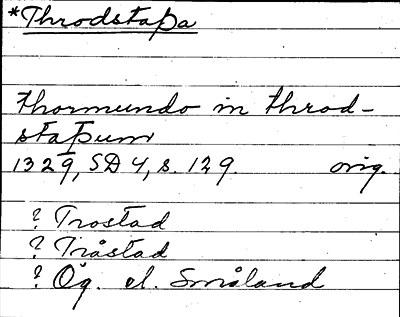 *Throdstaþa
thormundo in throd-
staþum
1329, SD 4, s. 129. orig.
? Trostad
? Tråstad
? Ög. el. Småland